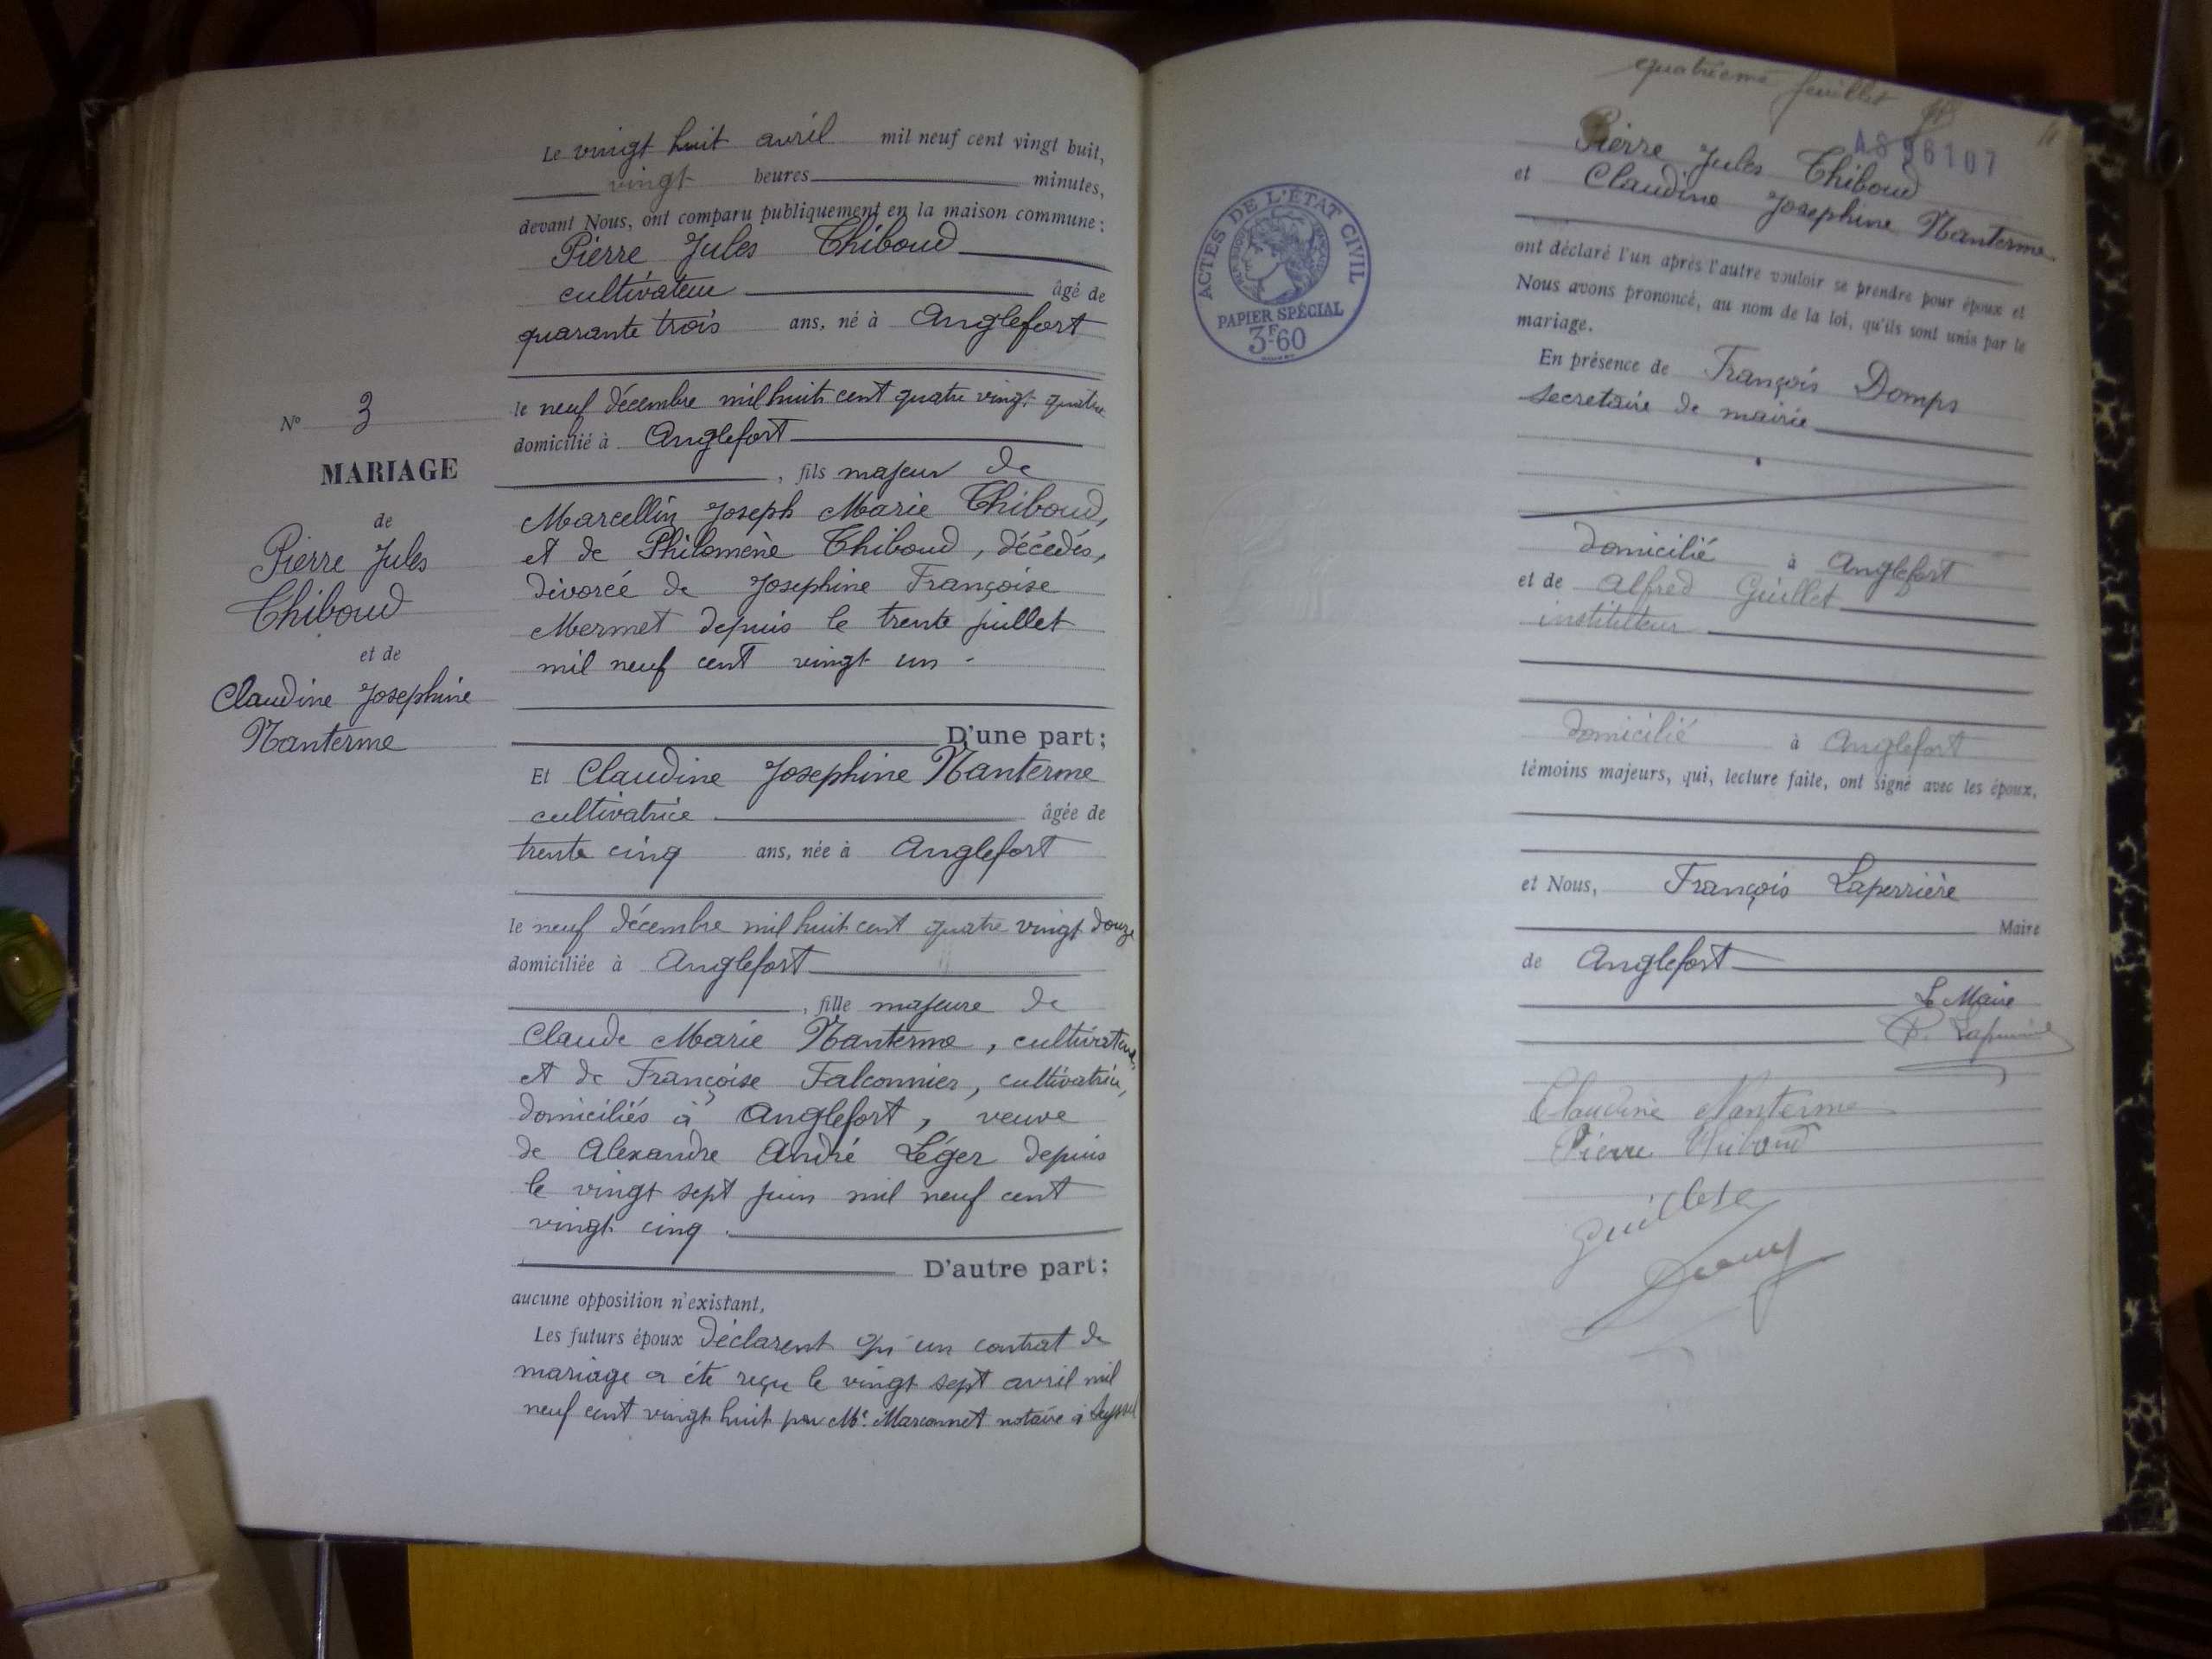 Le vingt huit avril mil neuf cent vingt huit,
vingt heures minutes,
devant Nous, ont comparu publiquement en la maison commune :
Pierre Jules Thiboud
cultivateur âgé de
quarante trois ans, né à Anglefort
le neuf décembre mil huit cent quatre vingt quatre
domicilié à Anglefort
, fils majeur de
Marcellin Joseph Marie Thiboud,
et de Philomène Thiboud, décédés,
divorcé de Josephine Françoise
Mermet depuis le trente juillet
mil neuf cent vingt un -
D'une part ;
Et Claudine Josephine Nanterme
cultivatrice âgée de
trente cinq ans, née à Anglefort
le neuf décembre mil huit cent quatre vingt douze
domiciliée à Anglefort
, fille majeure de
Claude Marie Nanterme, cultivateur,
et de Françoise Falconnier, cultivatrice,
domiciliés à Anglefort, veuve
de Alexandre André Léger depuis
le vingt sept juin mil neuf cent
vingt cinq.
D'autre part ;
aucune opposition n'existant,
Les futurs époux déclarent qu'un contrat de
mariage a été reçu le vingt sept avril mil
neuf cent vingt huit par Me. Marconnet notaire à Seyssel
N° 3
MARIAGE
de
Pierre Jules
Thiboud
et de
Claudine Josephine
Nanterme
quatrième feuillet
AS96107
Pierre Jules Thiboud
et Claudine Josephine Nanterme
ont déclaré l'un après l'autre vouloir se prendre pour époux et
Nous avons prononcé, au nom de la loi, qu'ils sont unis par le
mariage.
En présence de François Domps
secretaire de mairie
domicilié à Anglefort
et de Alfred Guillet
instituteur
domicilié à Anglefort
témoins majeurs, qui, lecture faite, ont signé avec les époux,
et Nous, François Laperrière
Maire
de Anglefort
Le Maire
Laperrière
Claudine Nanterme
Pierre Thiboud
ACTES DE L'ÉTAT CIVIL
PAPIER SPÉCIAL
3F.60